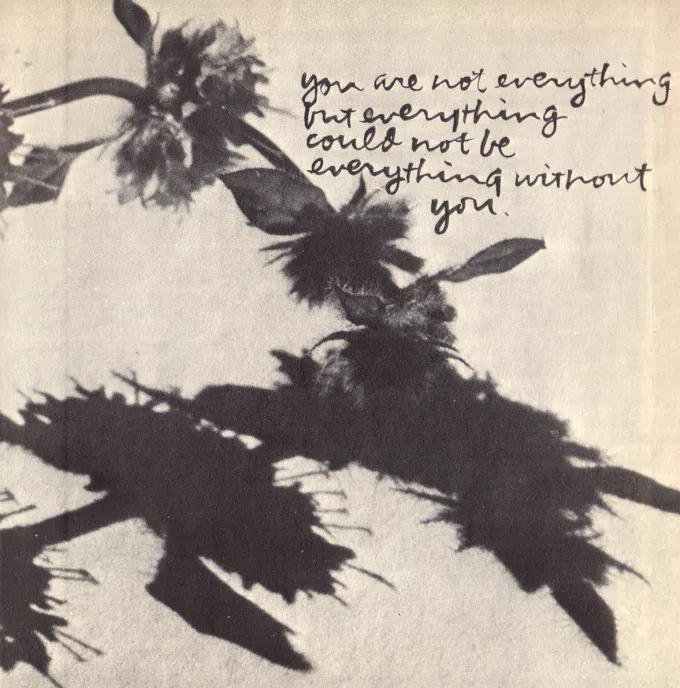 you are not everything
but everything
could not be
everything without
you.